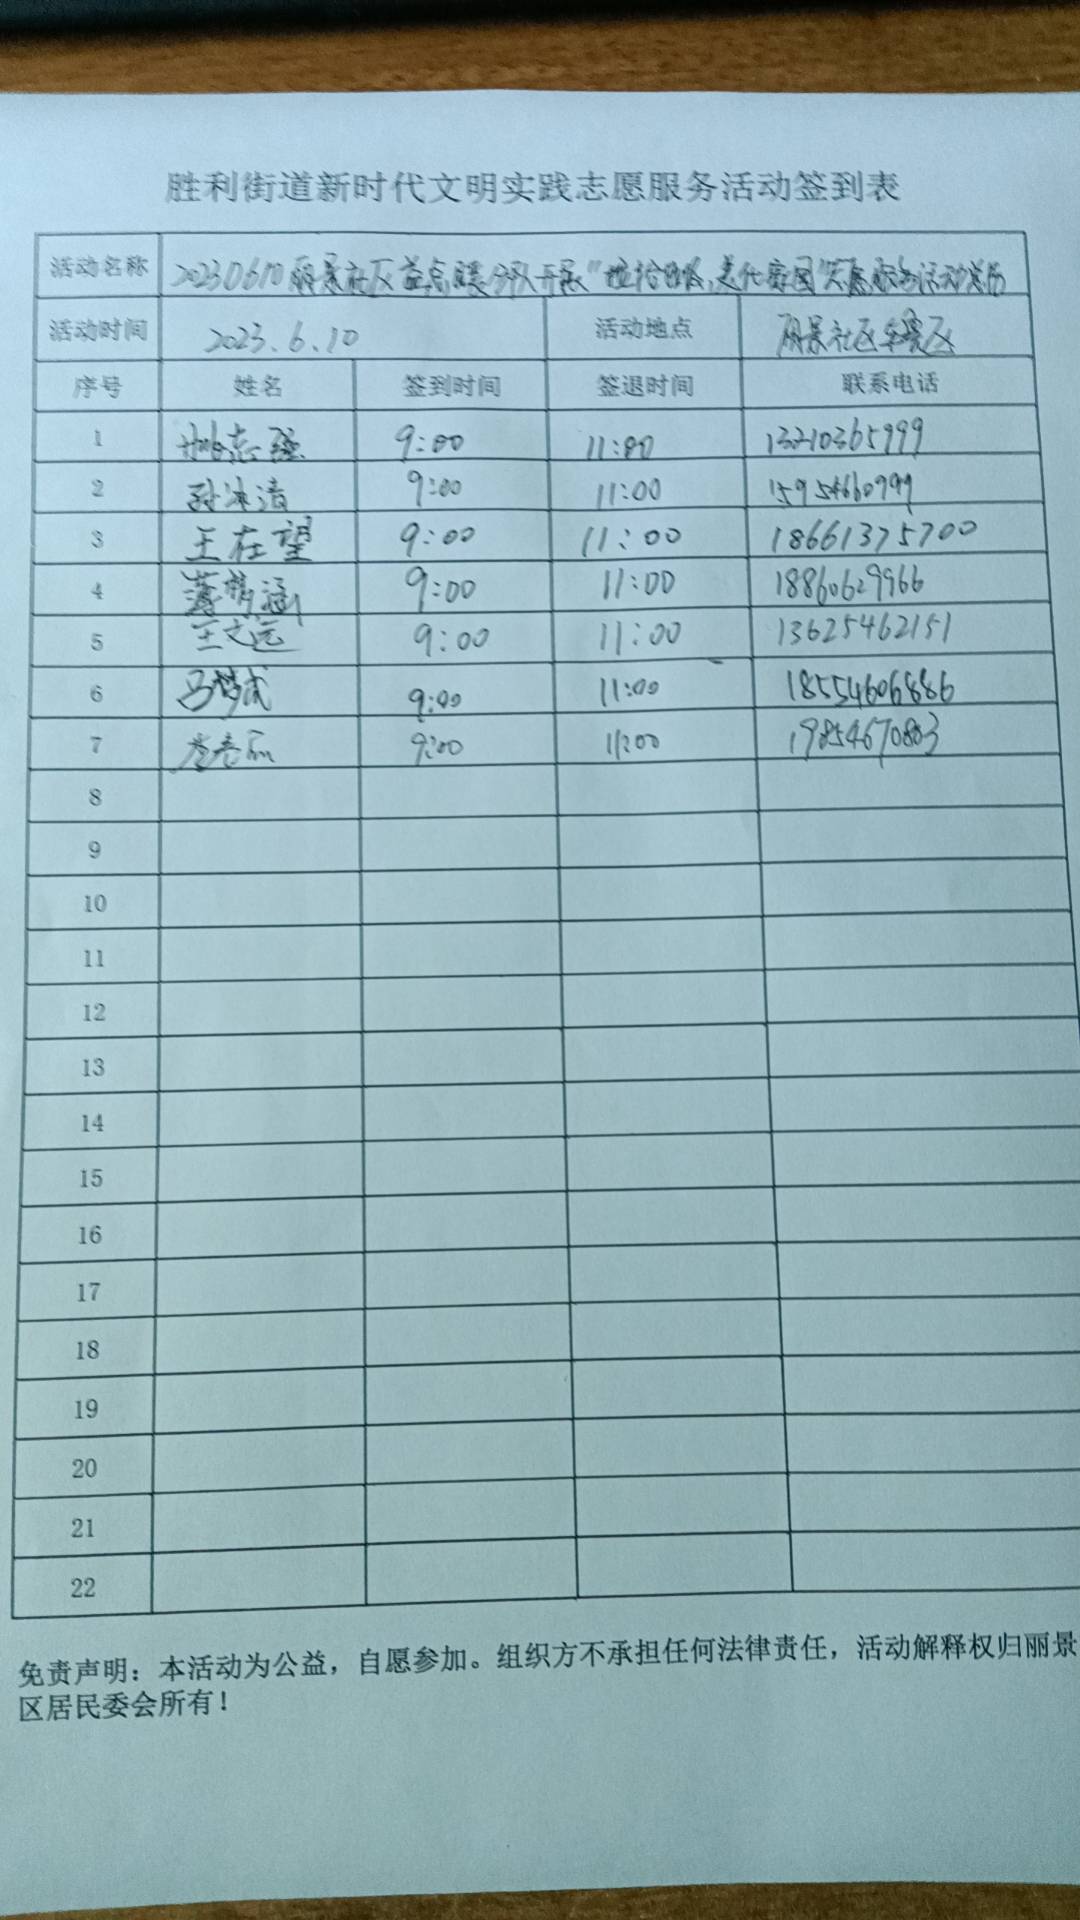 胜利街道新时代文明实践志愿服务活动签到表
活动名称 20230610丽景社区益点暖分队开展"捡拾垃圾,美化家园"志愿服务活动
活动时间 2023.6.10 活动地点 丽景社区
序号 姓名 签到时间 签退时间 联系电话
1 志强 9:00 11:00 13210365999
2 孙冰清 9:00 11:00 15954660999
3 王在望 9:00 11:00 18661375700
4 涵 9:00 11:00 18860629966
5 王文远 9:00 11:00 13625462151
6 马梦 9:00 11:00 18554606886
7 9:00 11:00 19854670803
8
9
10
11
12
13
14
15
16
17
18
19
20
21
22
免责声明：本活动为公益，自愿参加。组织方不承担任何法律责任，活动解释权归丽景
区居民委会所有！